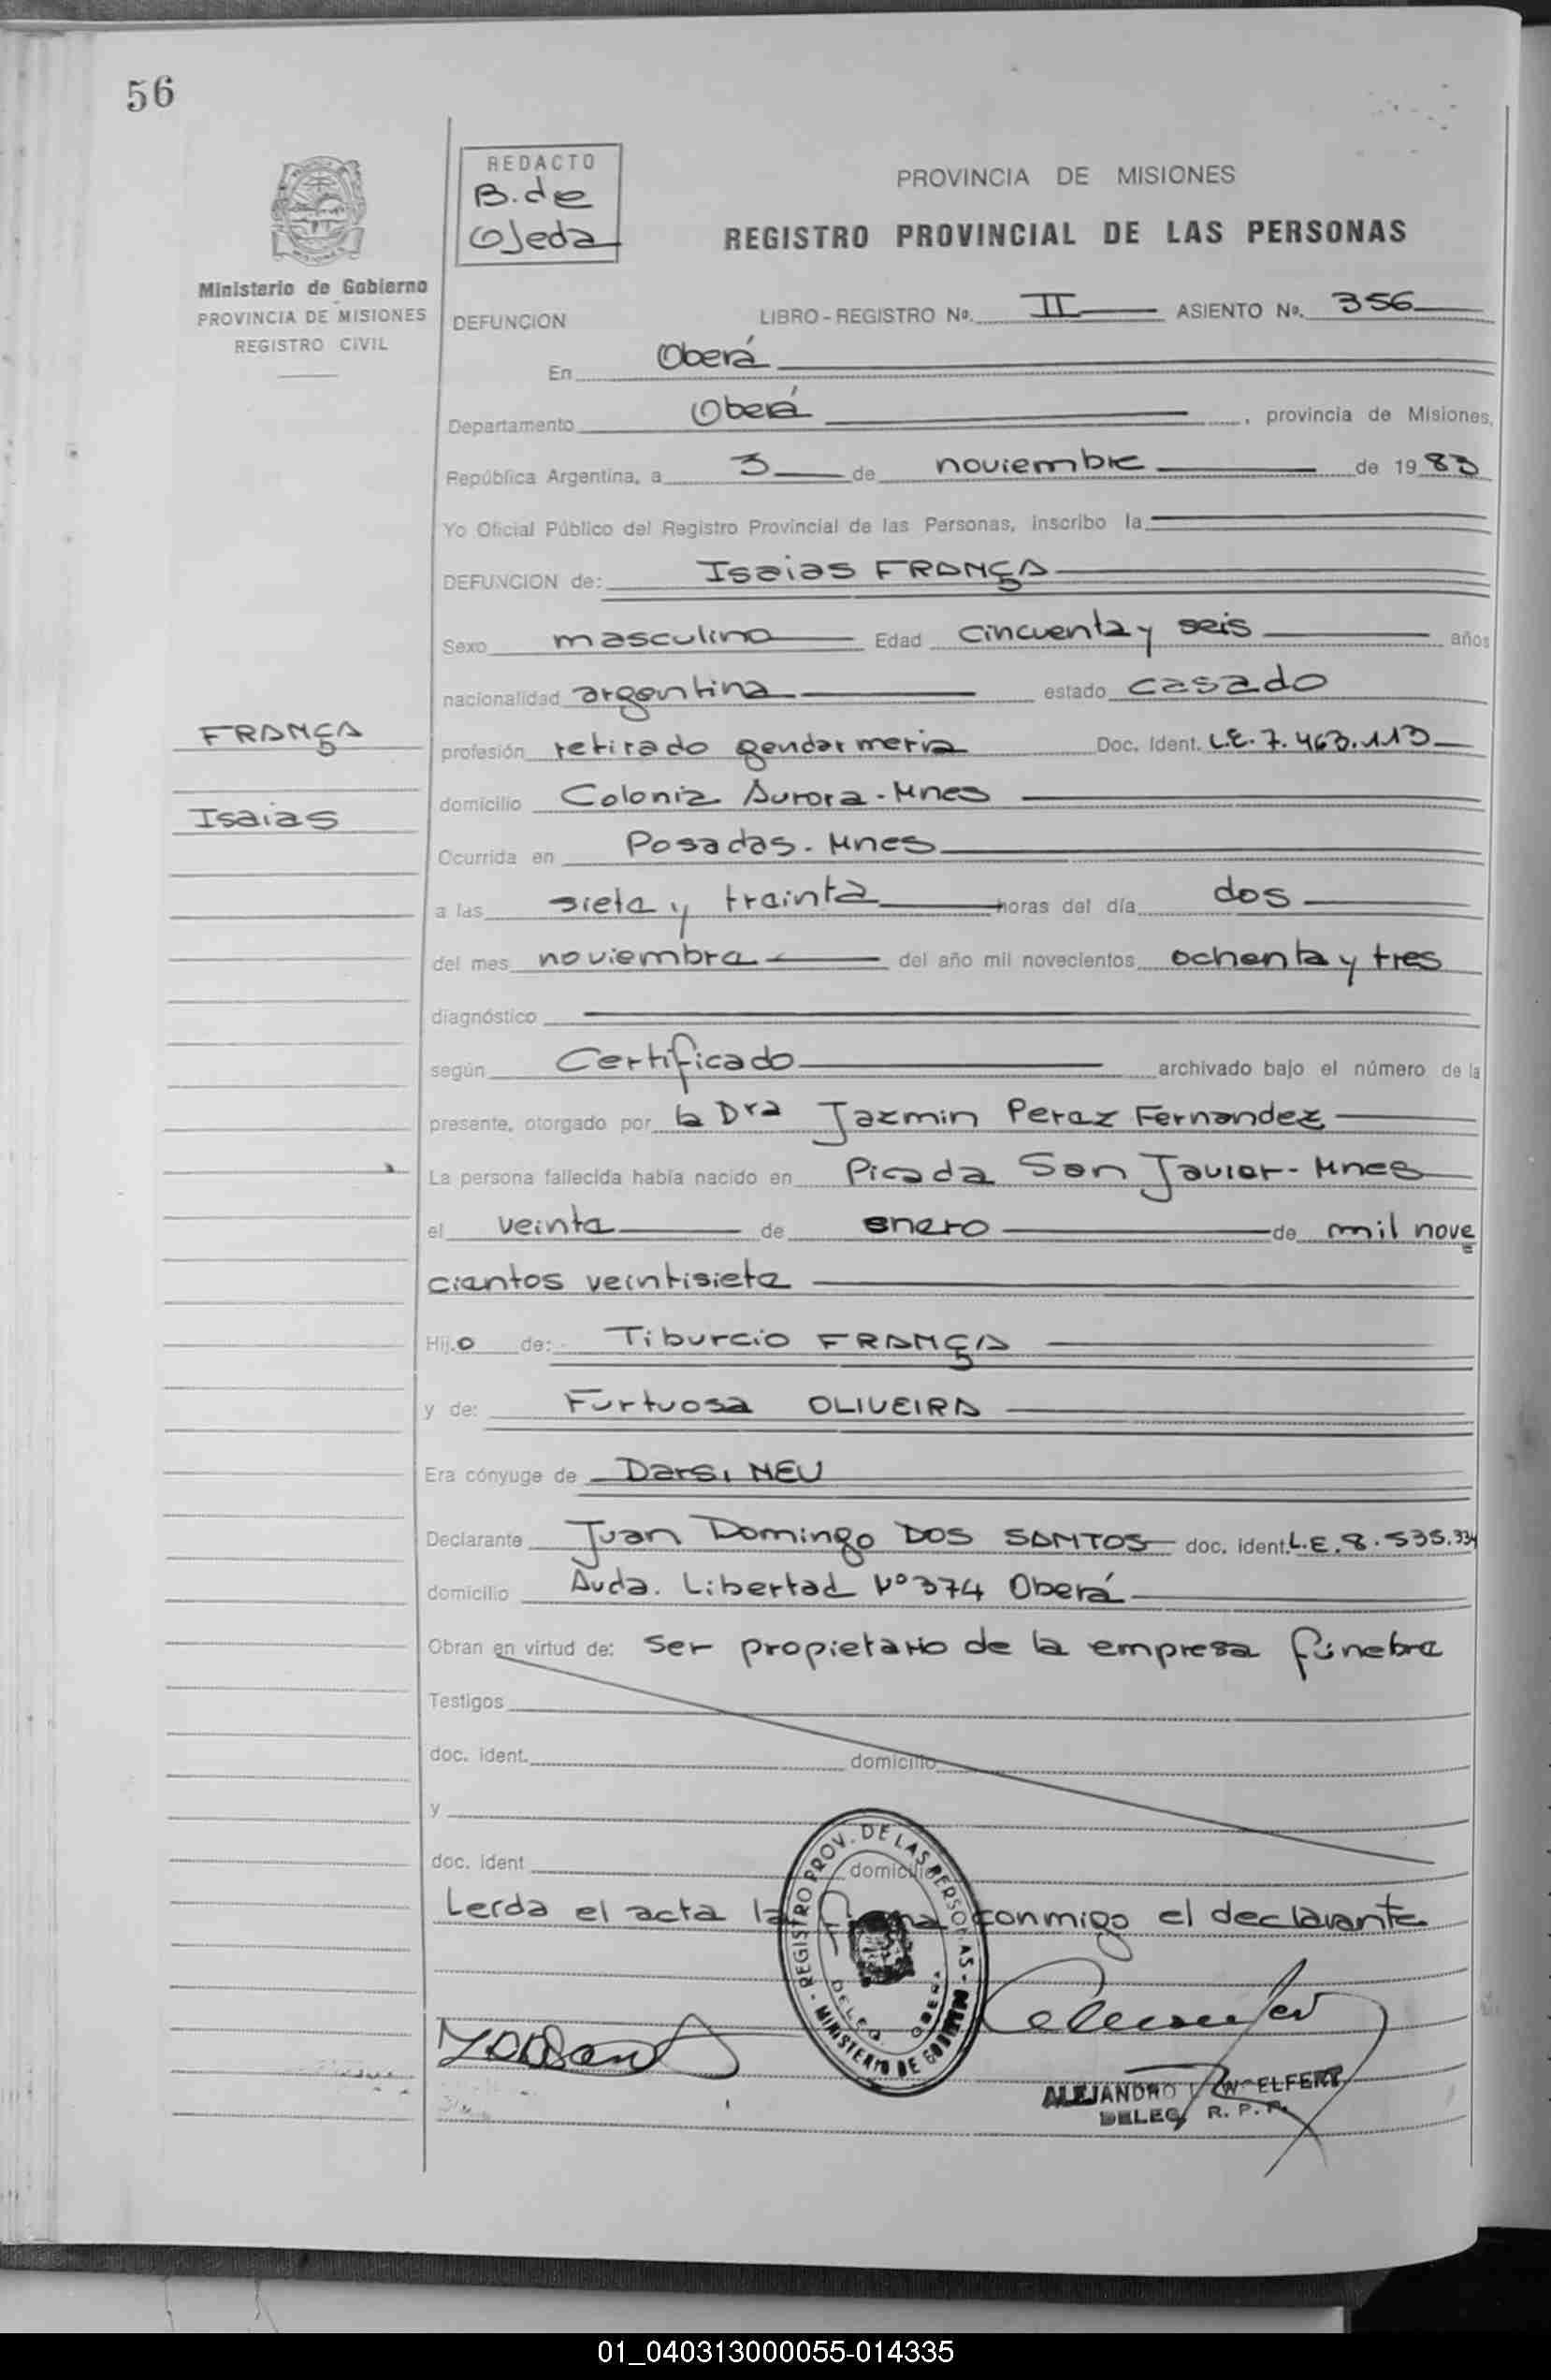 56
REDACTO
B. de
Ojeda
PROVINCIA DE MISIONES
REGISTRO PROVINCIAL DE LAS PERSONAS
Ministerio de Gobierno
PROVINCIA DE MISIONES
REGISTRO CIVIL
DEFUNCION LIBRO-REGISTRO Nº. II ASIENTO Nº. 356
En Oberá
Departamento Oberá, provincia de Misiones,
República Argentina, a 3 de noviembre de 1983
Yo Oficial Público del Registro Provincial de las Personas, inscribo la
DEFUNCION de: Isaias FRANÇA
Sexo masculino Edad cincuenta y seis años
nacionalidad argentina estado casado
FRANÇA
profesión retirado gendarmeria Doc. Ident. L.E. 7.463.113
domicilio Colonia Aurora - Mnes
Isaias
Ocurrida en Posadas. Mnes
a las siete y treinta horas del día dos
del mes noviembre del año mil novecientos ochenta y tres
diagnóstico
según Certificado archivado bajo el número de la
presente, otorgado por la Dra Jazmin Perez Fernandez
La persona fallecida había nacido en Picada San Javier - Mnes
el veinte de enero de mil nove
cientos veintisiete
Hijo de: Tiburcio FRANÇA
y de: Furtuosa OLIVEIRA
Era cónyuge de Darsi NEU
Declarante Juan Domingo DOS SANTOS doc. ident. L.E. 8.535.334
domicilio Avda. Libertad Nº 374 Oberá
Obran en virtud de: ser propietario de la empresa fúnebre
Testigos
doc. ident. domicilio
y
doc. ident domicilio
Leida el acta la firma conmigo el declarante
REGISTRO PROV. DE LAS PERSONAS - MINISTERIO DE GOBIERNO -
DELEG. OBERA
ALEJANDRO WOELFERT
DELEG. R. P. P.
01_040313000055-014335